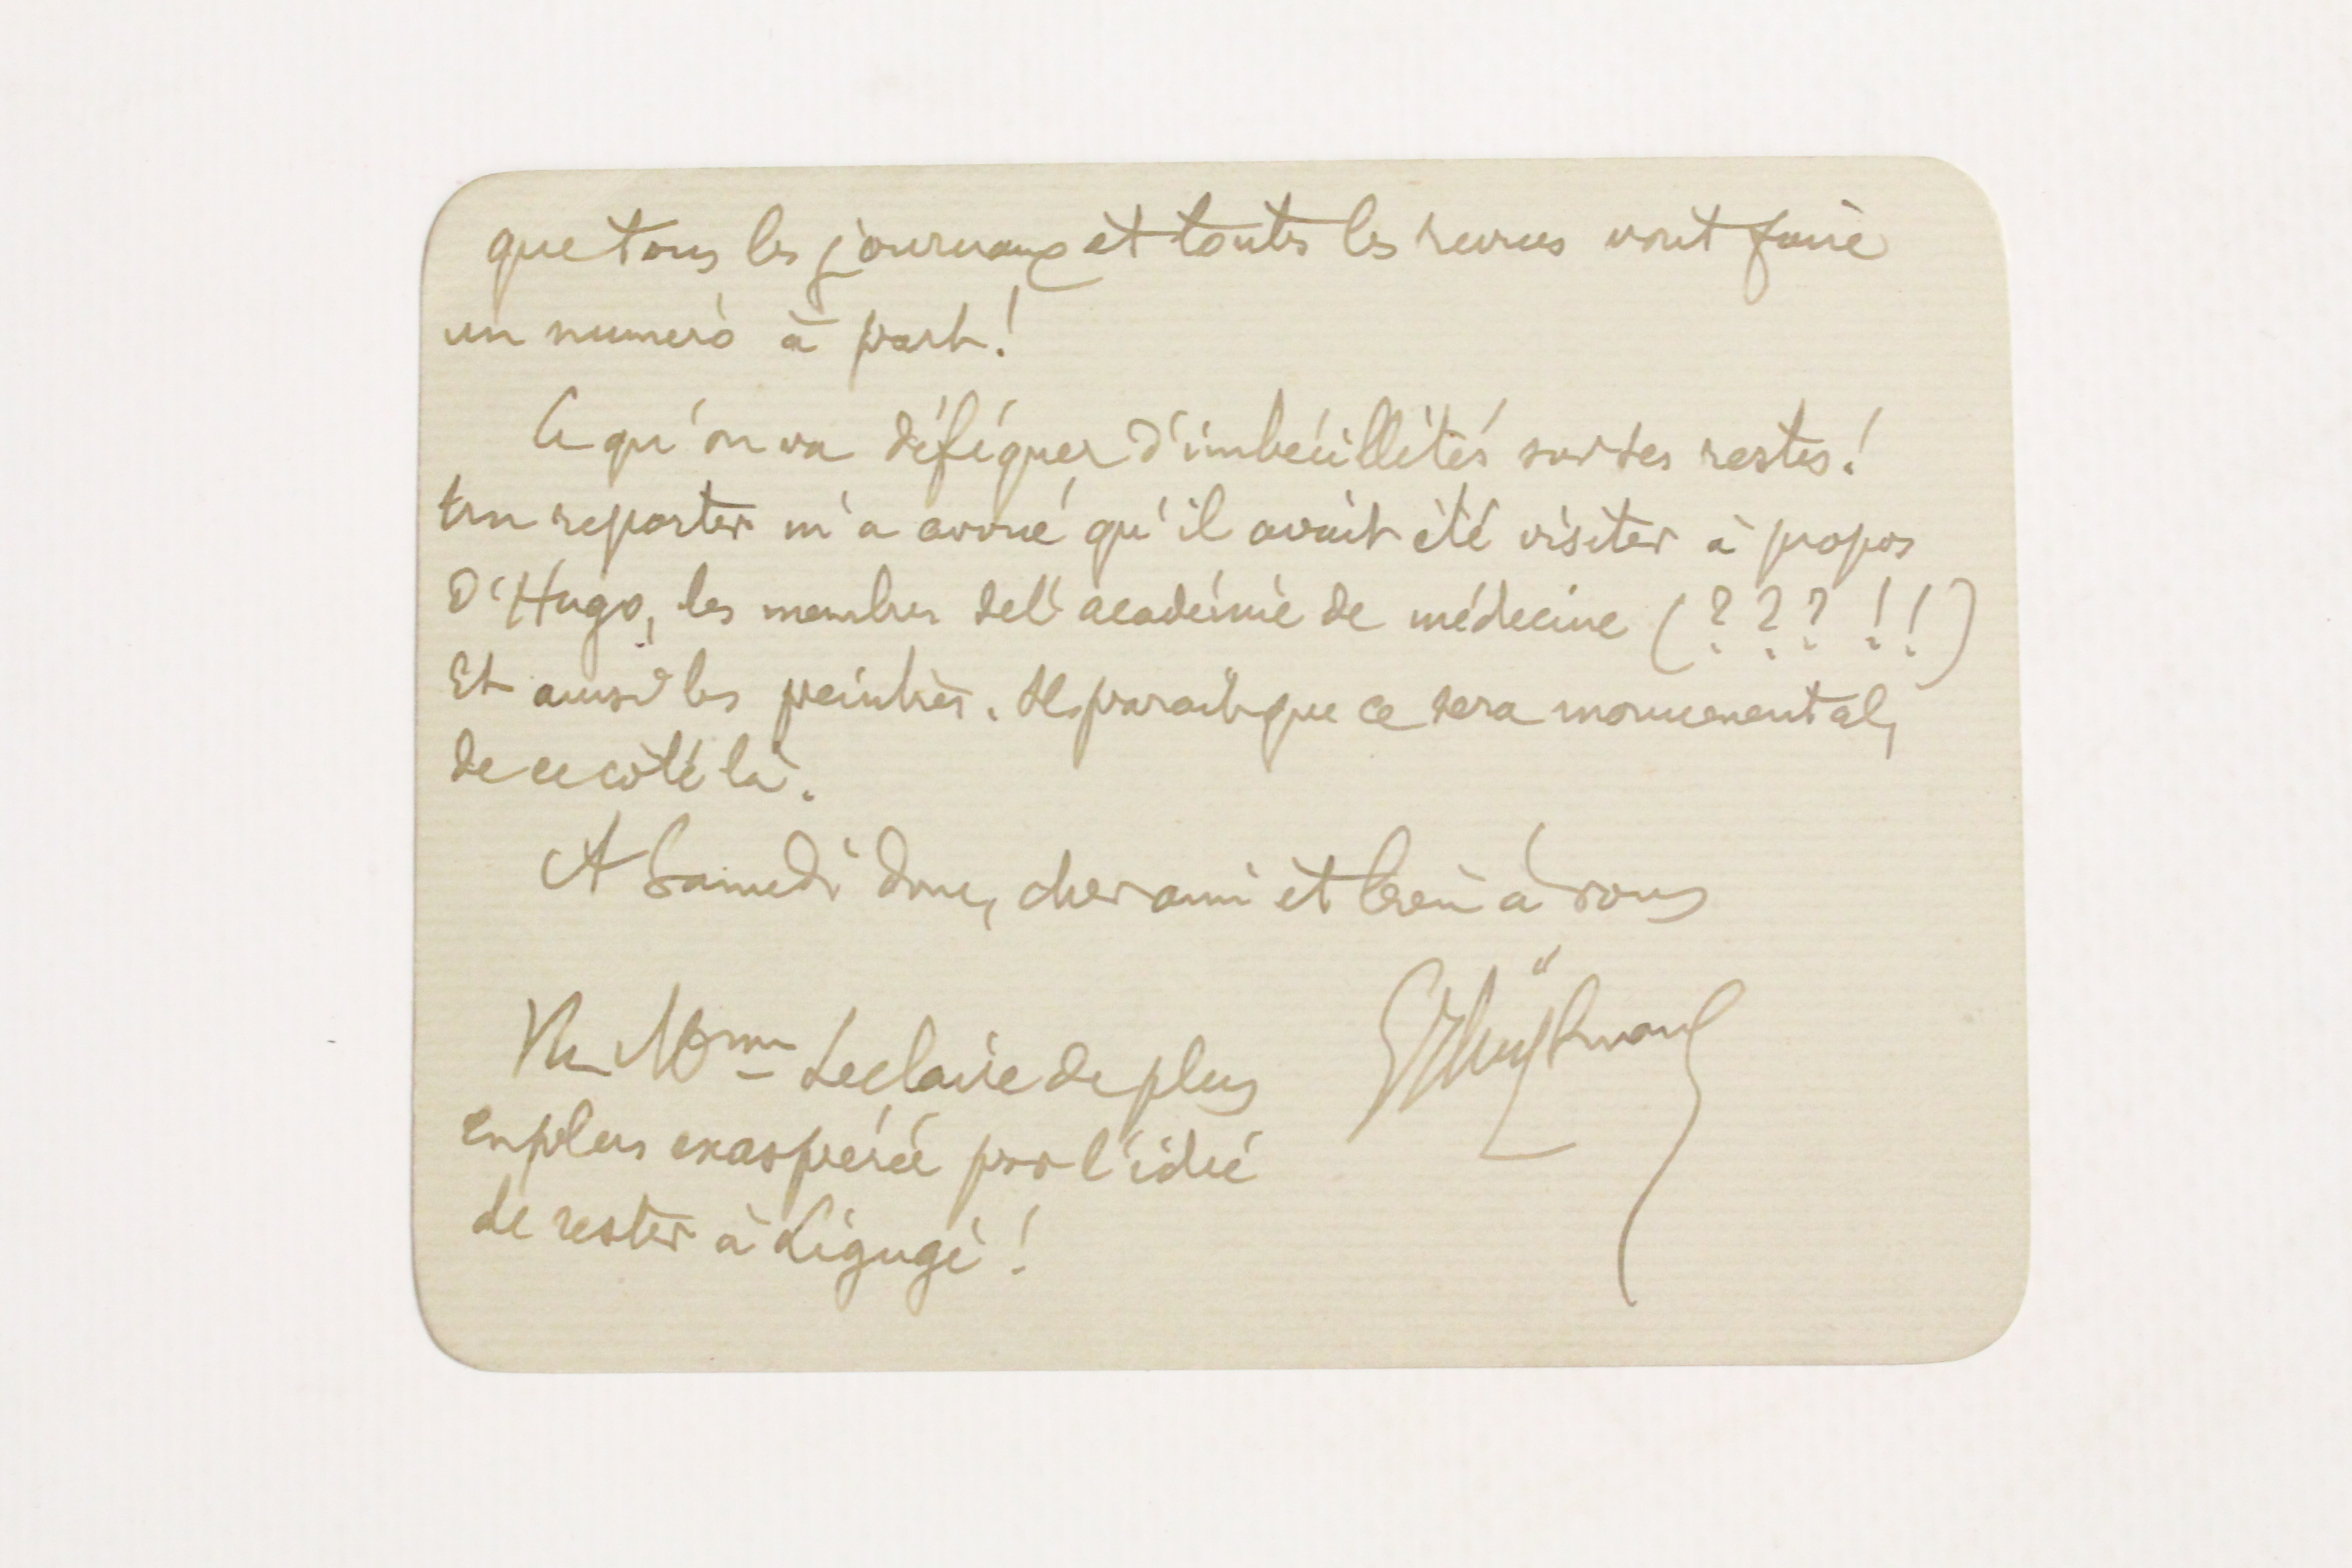 que tous les journaux et toutes les revues vont faire
un numéro à part !
Ce qu'on va déféquer d'imbécillités sur ses restes !
Un reporter m'a avoué qu'il avait été visiter à propos
d'Hugo, les membres de l'académie de médecine (? ? ? ! !)
Et aussi les peintres. Il paraît que ce sera monumental,
de ce côté là.
A Samedi donc, cher ami et bien à vous
GJ Huÿsmans
Vu Mme Leclaire de plus
en plus exaspérée par l'idée
de rester à Ligugé !